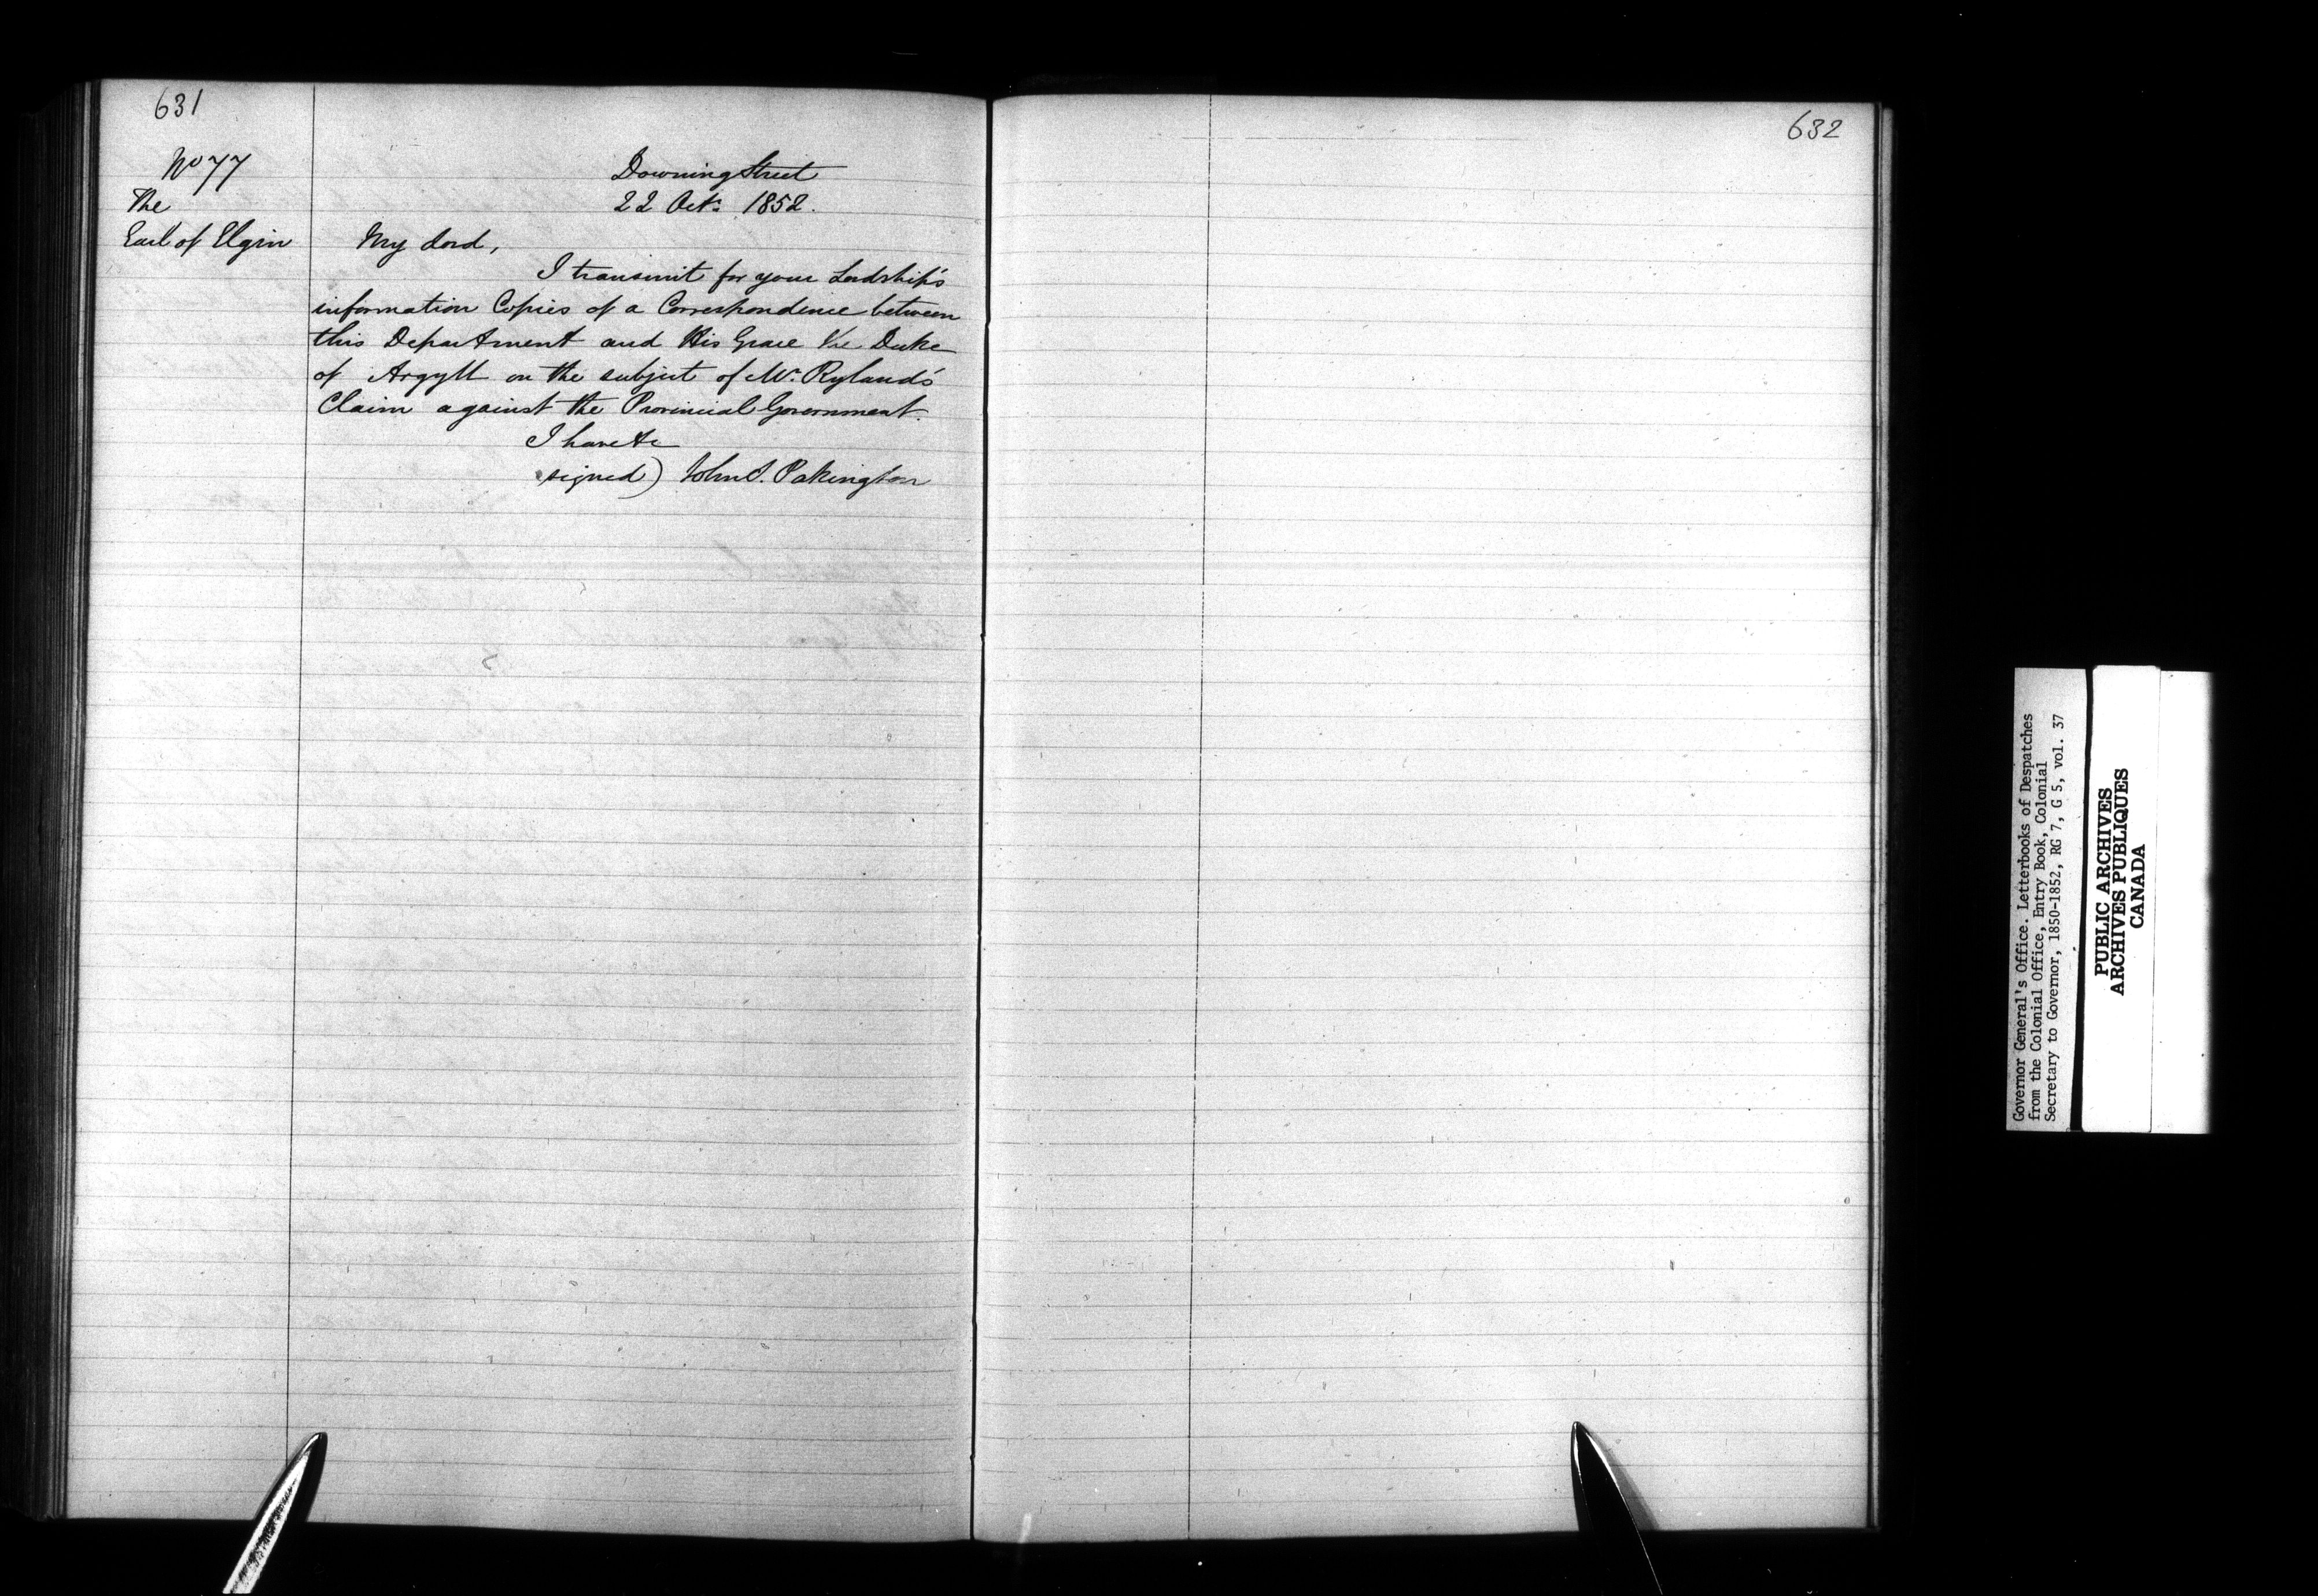 631
No 77
The
Earl of Elgin
Downing Street
22 Oct: 1852.
My Lord,
I transmit for your Lordship's
information Copies of a Correspondence between
this Department and His Grace the Duke
of Argyll on the subject of Mr. Ryland's
Claim against the Provincial Government.
I have &c
signed) John S. Pakington
632
Governor General's Office. Letterbooks of Despatches
from the Colonial Office, Entry Book, Colonial
Secretary to Governor, 1850-1852, RG 7, G 5, vol. 37
PUBLIC ARCHIVES
ARCHIVES PUBLIQUES
CANADA